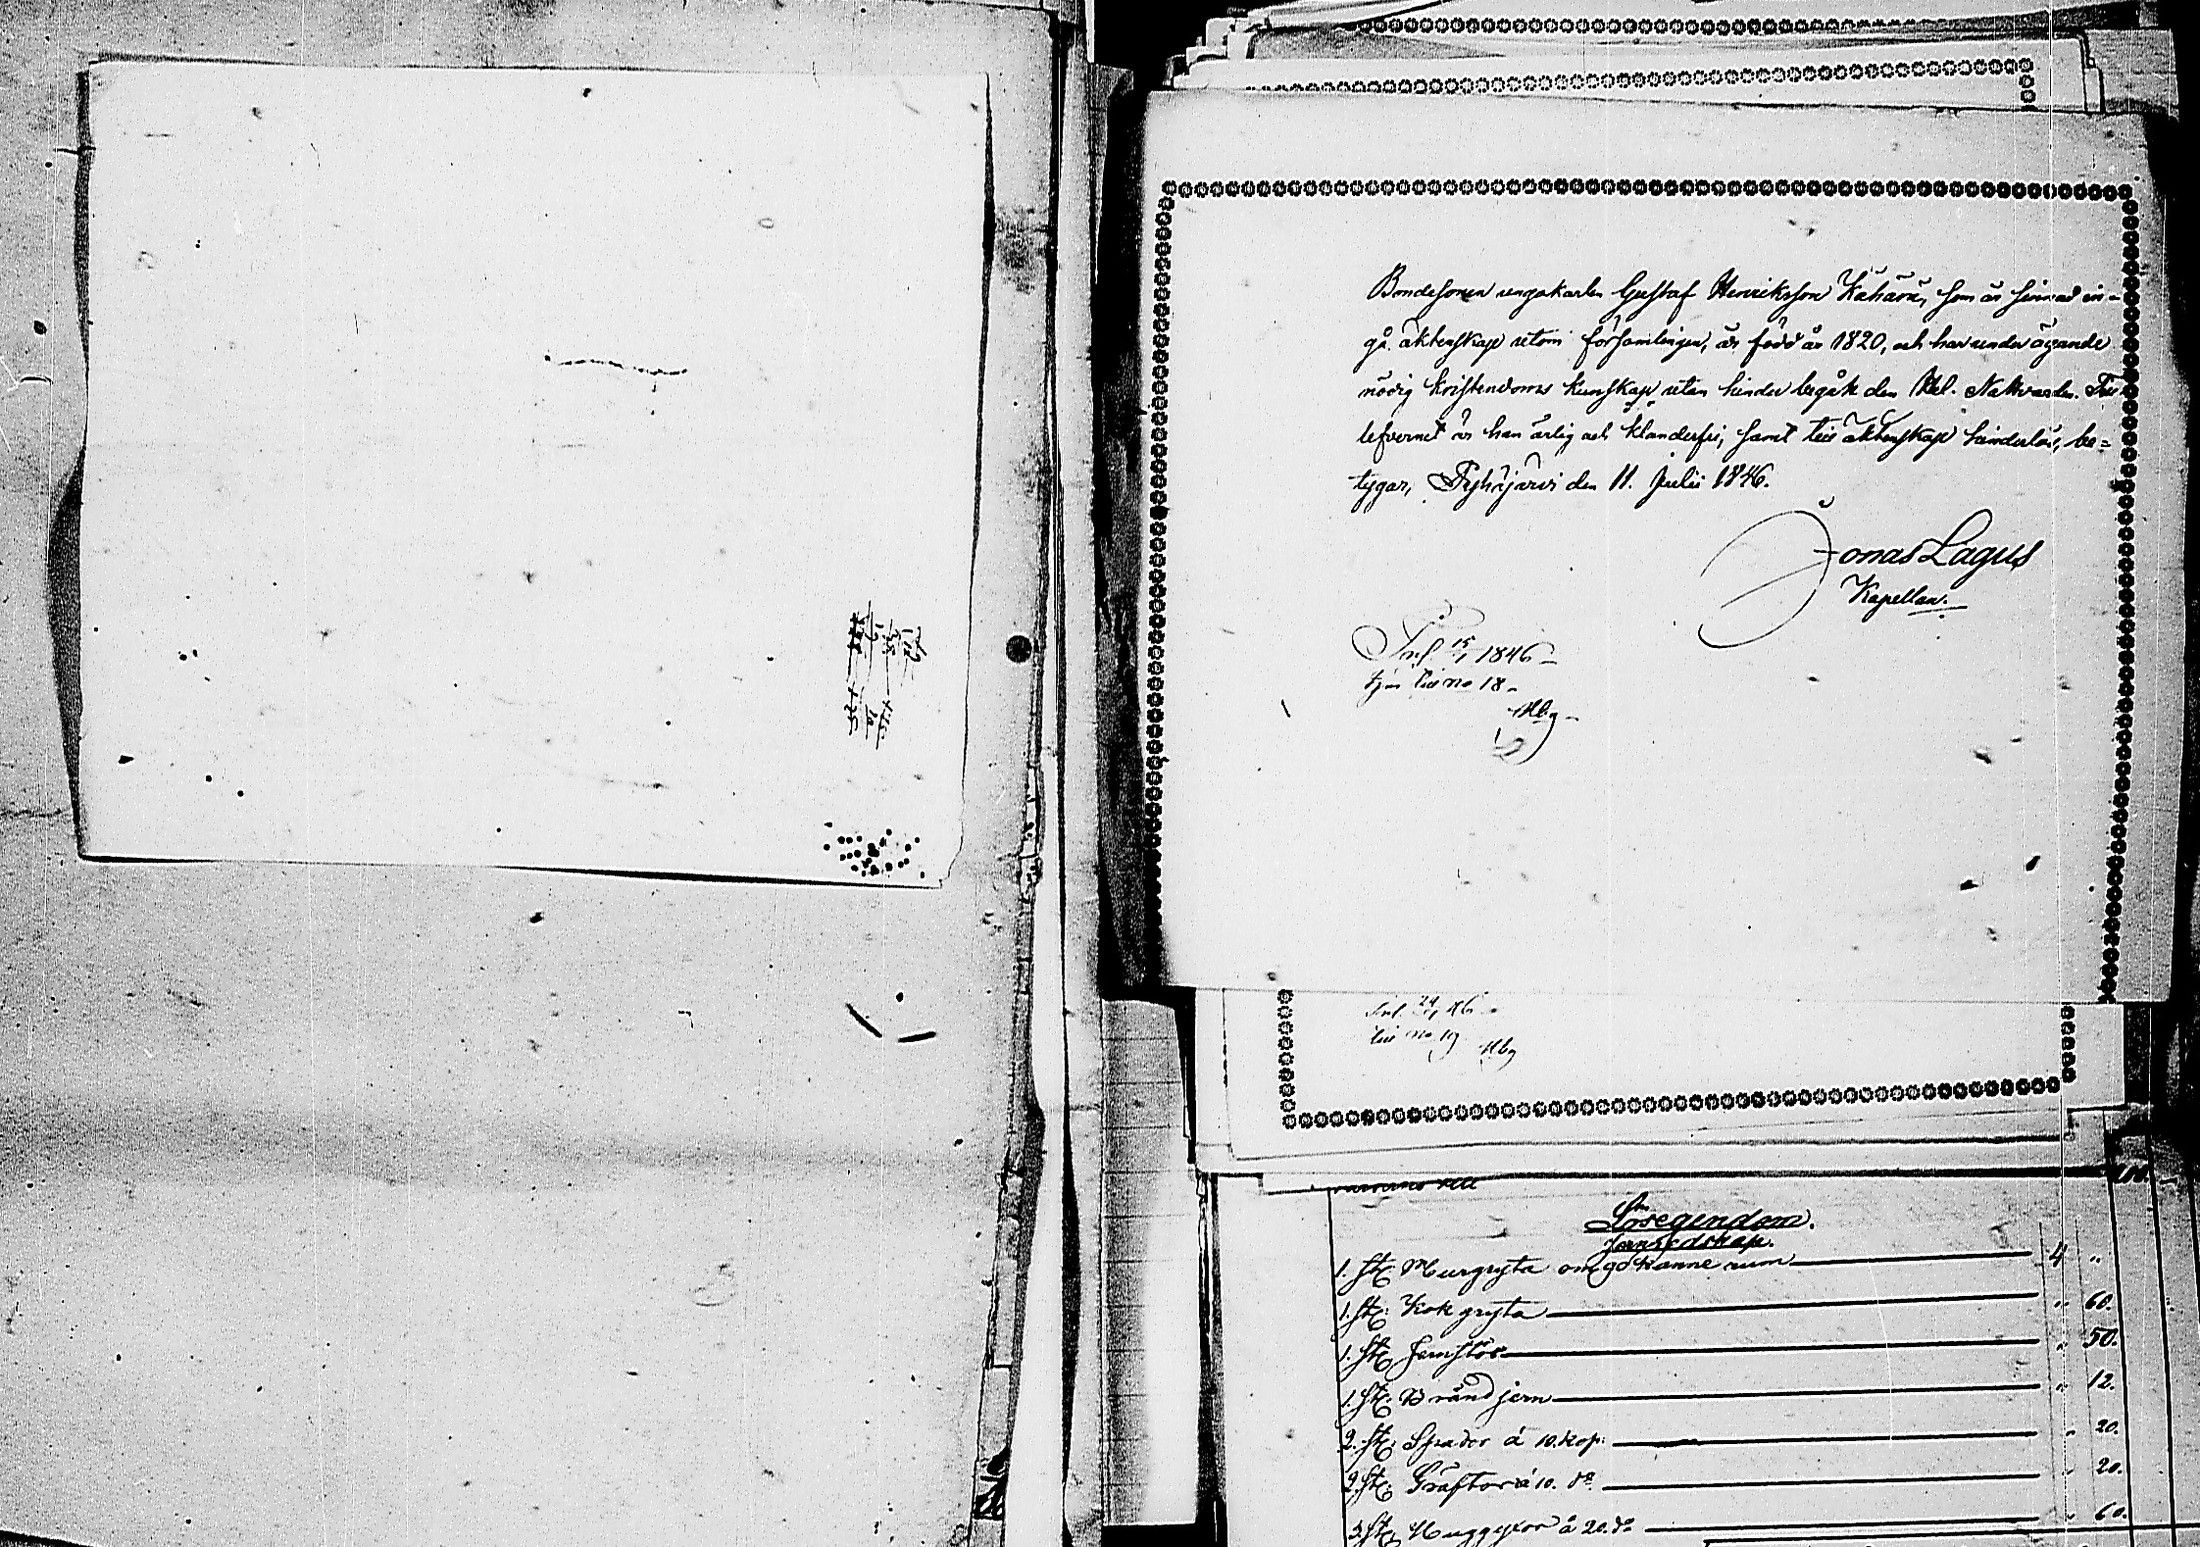 Bondesonen ungakarlen Gustaf Henriksson Kähärä, som är sinnad in-
gå äktenskap utom församlingen, är född år 1820, och har under ägande
nödig kristendoms kunskap utan hinder begått den Hel. Nattvarden. Till
lefvernet är han ärlig och klanderfri, samt till äktenskap hinderlös, be-
tygar, Pyhäjärvi den 11. Julii 1846.
Jonas Lagus
Kapellan.
1846
till no 18
Hbg
24 46
till no 19
Hbg
Lösegendom.
Jernredskap.
1. st. Murgryta om 90 kanne rum 4 "
1. st. Kok gryta " 60.
1. st. Jernstör " 50.
1. st. Bränd jern " 12.
2. st. Spador á 10. kop: " 20.
2. st. Gräftor á 10. do " 20.
3. st. Huggyxor á 20. do " 60.